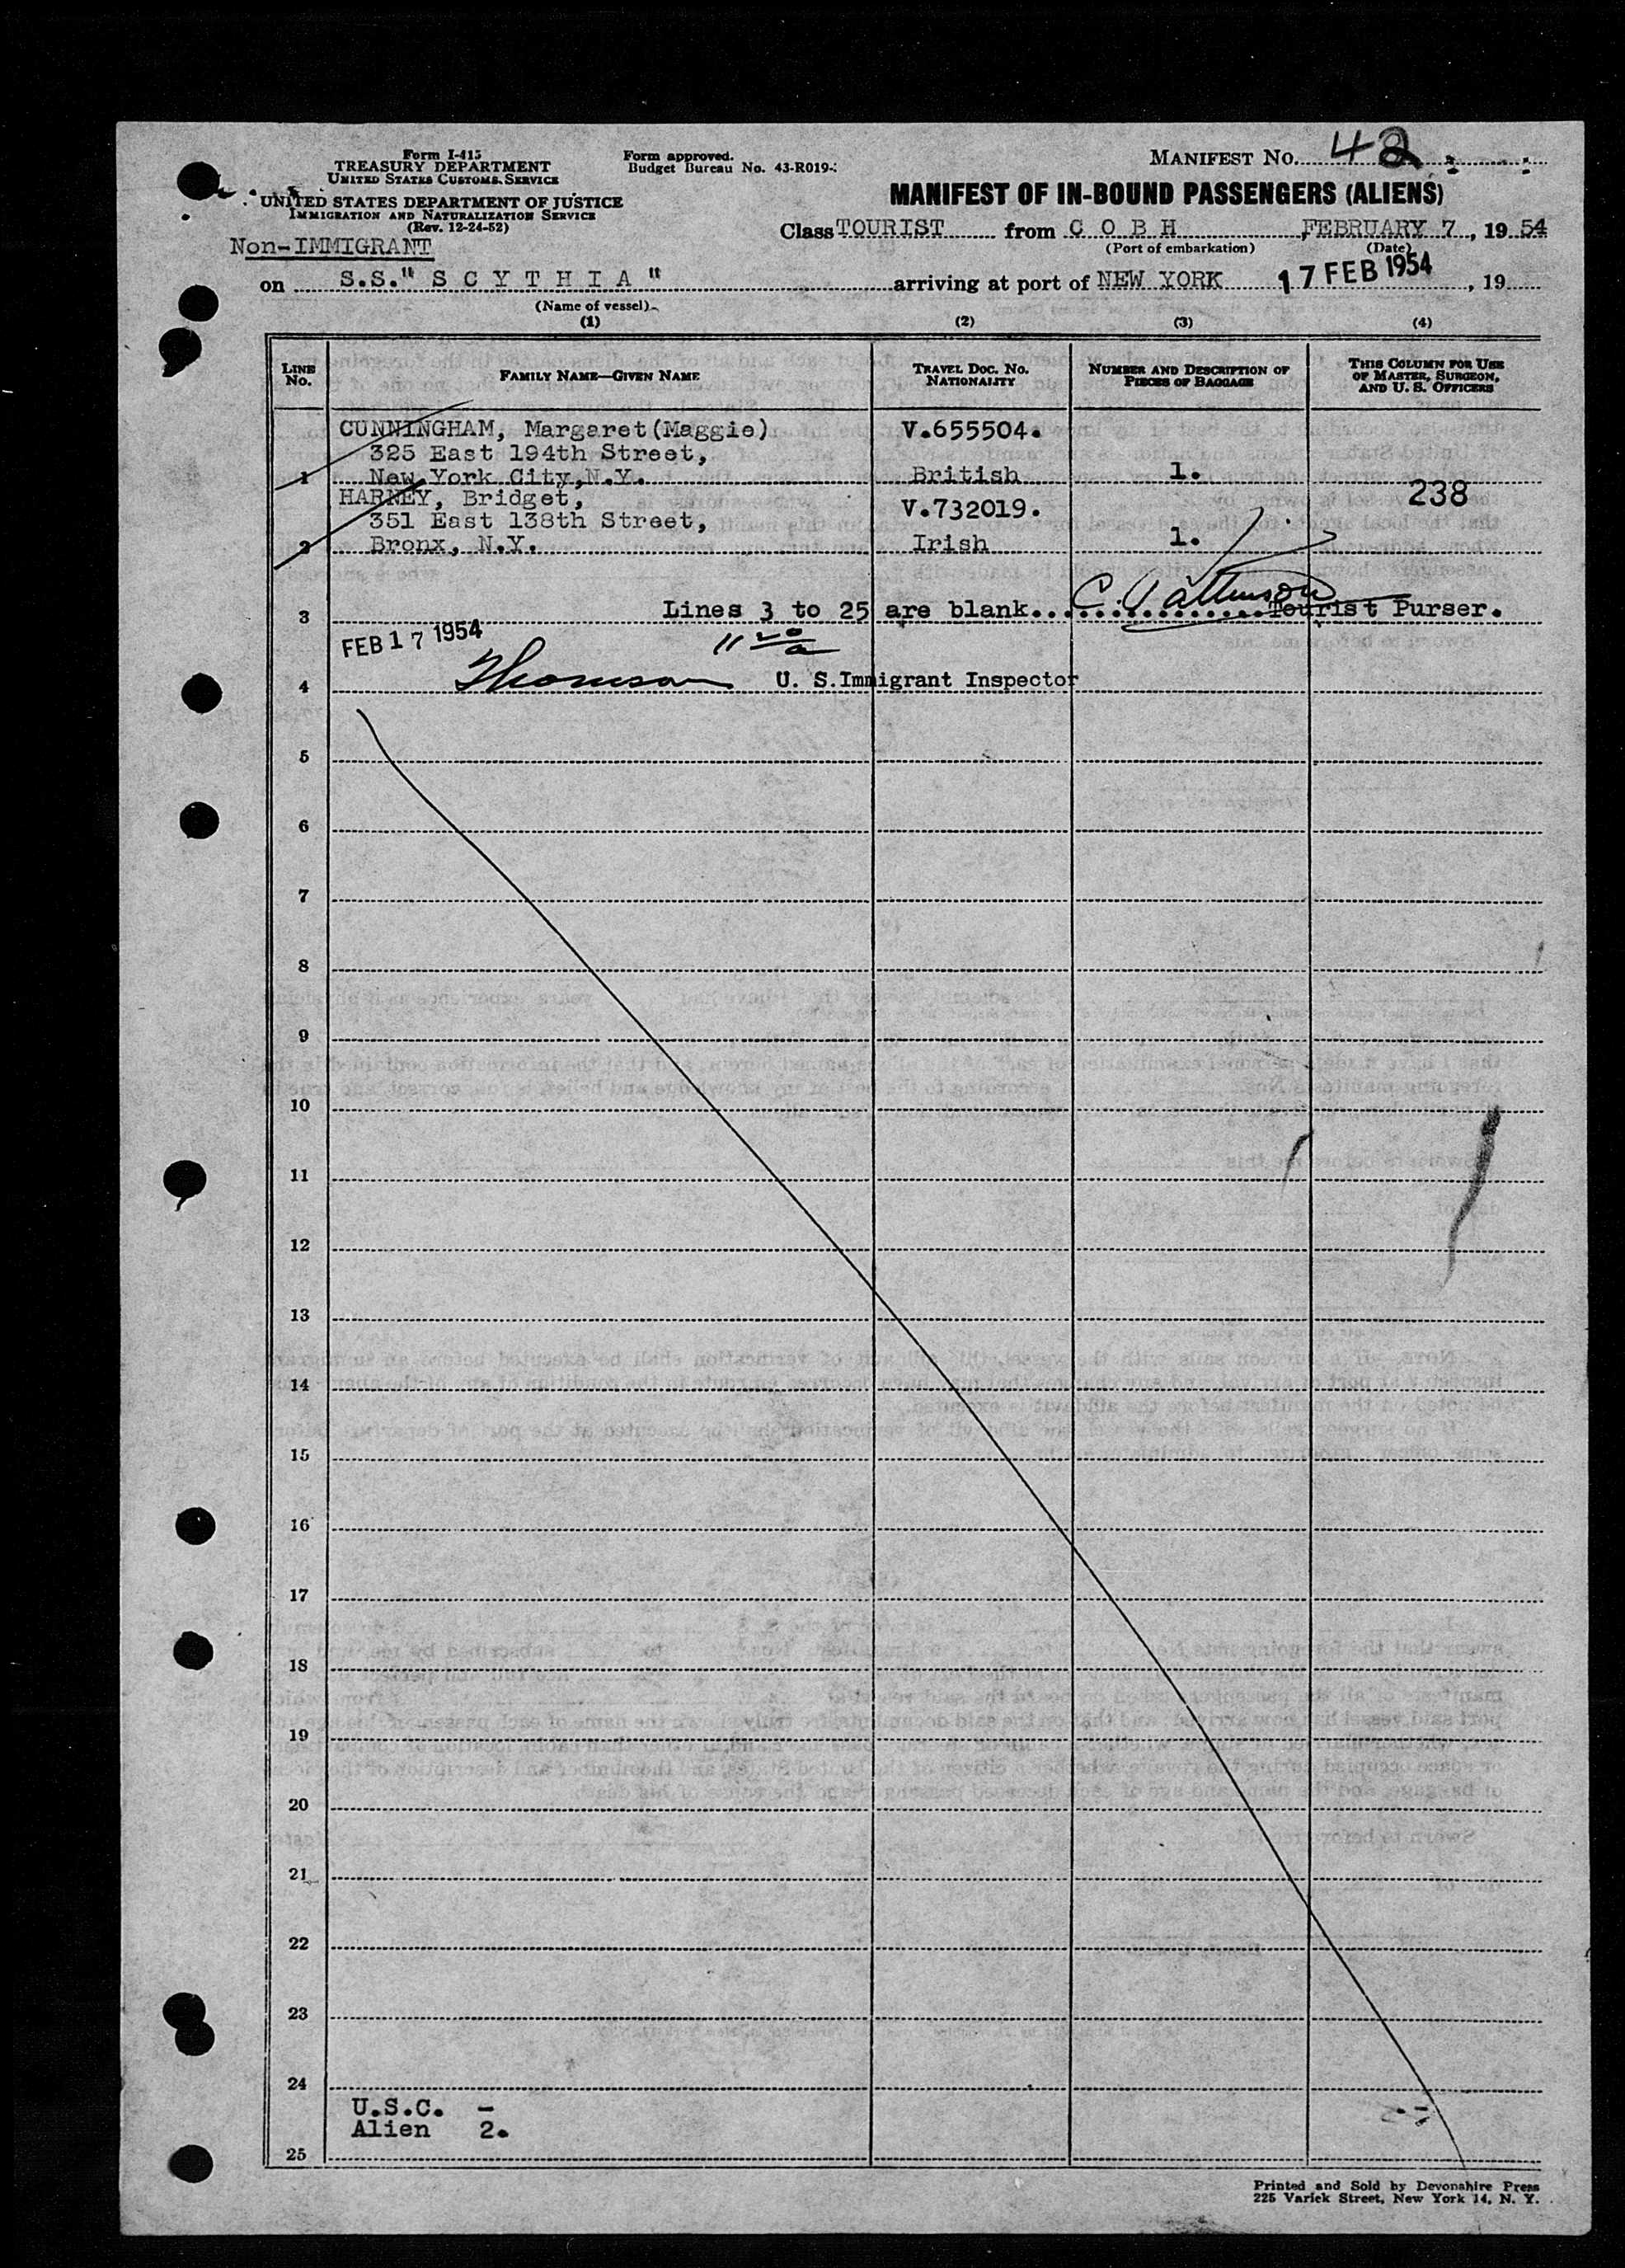 Form I-415
TREASURY DEPARTMENT
UNITED STATES CUSTOMS SERVICE
UNITED STATES DEPARTMENT OF JUSTICE
IMMIGRATION AND NATURALIZATION SERVICE
(Rev. 12-24-52)
Non-IMMIGRANT
Form approved.
Budget Bureau No. 43-R019-
MANIFEST No. 42
MANIFEST OF IN-BOUND PASSENGERS (ALIENS)
Class TOURIST from C O B H FEBRUARY 7, 19 54
(Port of embarkation) (Date)
on S.S." S C Y T H I A " arriving at port of NEW YORK 17 FEB 1954, 19
(Name of vessel)
(1) (2) (3) (4)
LINE No. FAMILY NAME—GIVEN NAME TRAVEL DOC. No. NATIONALITY NUMBER AND DESCRIPTION OF PIECES OF BAGGAGE THIS COLUMN FOR USE OF MASTER, SURGEON, AND U. S. OFFICERS
CUNNINGHAM, Margaret(Maggie) V.655504.
325 East 194th Street,
1 New York City, N.Y. British 1.
HARNEY, Bridget, V.732019. 238
351 East 138th Street,
2 Bronx, N.Y. Irish 1.
3 Lines 3 to 25 are blank.............. Tourist Purser.
FEB 17 1954
4 Thomson U. S. Immigrant Inspector
5
6
7
8
9
10
11
12
13
14
15
16
17
18
19
20
21
22
23
24
U.S.C. -
Alien 2.
25
Printed and Sold by Devonshire Press
225 Varick Street, New York 14, N. Y.